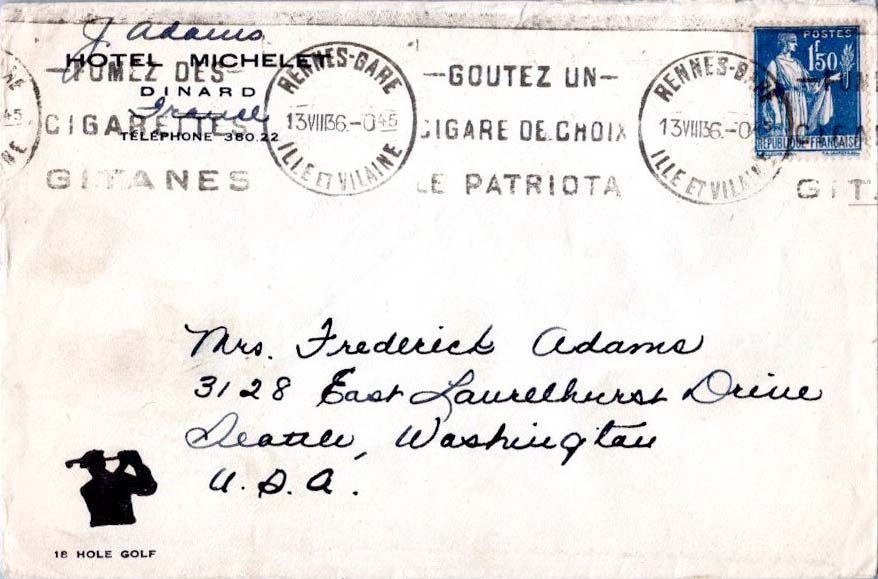 J Adams
HOTEL MICHELET
DINARD
France
TÉLÉPHONE 380.22
NE
45
NE
—FUMEZ DES—
CIGARETTES
GITANES
RENNES-GARE
13VIII36.-045
ILLE ET VILAINE
—GOUTEZ UN—
CIGARE DE CHOIX
LE PATRIOTA
RENNES-GARE
13VIII36.-0
ILLE ET VILAINE
—FUM
CIGA
GITA
POSTES
1F50
REPUBLIQUE FRANÇAISE
Mrs. Frederick Adams
3128 East Laurelhurst Drive
Seattle, Washington
U.S.A.
18 HOLE GOLF